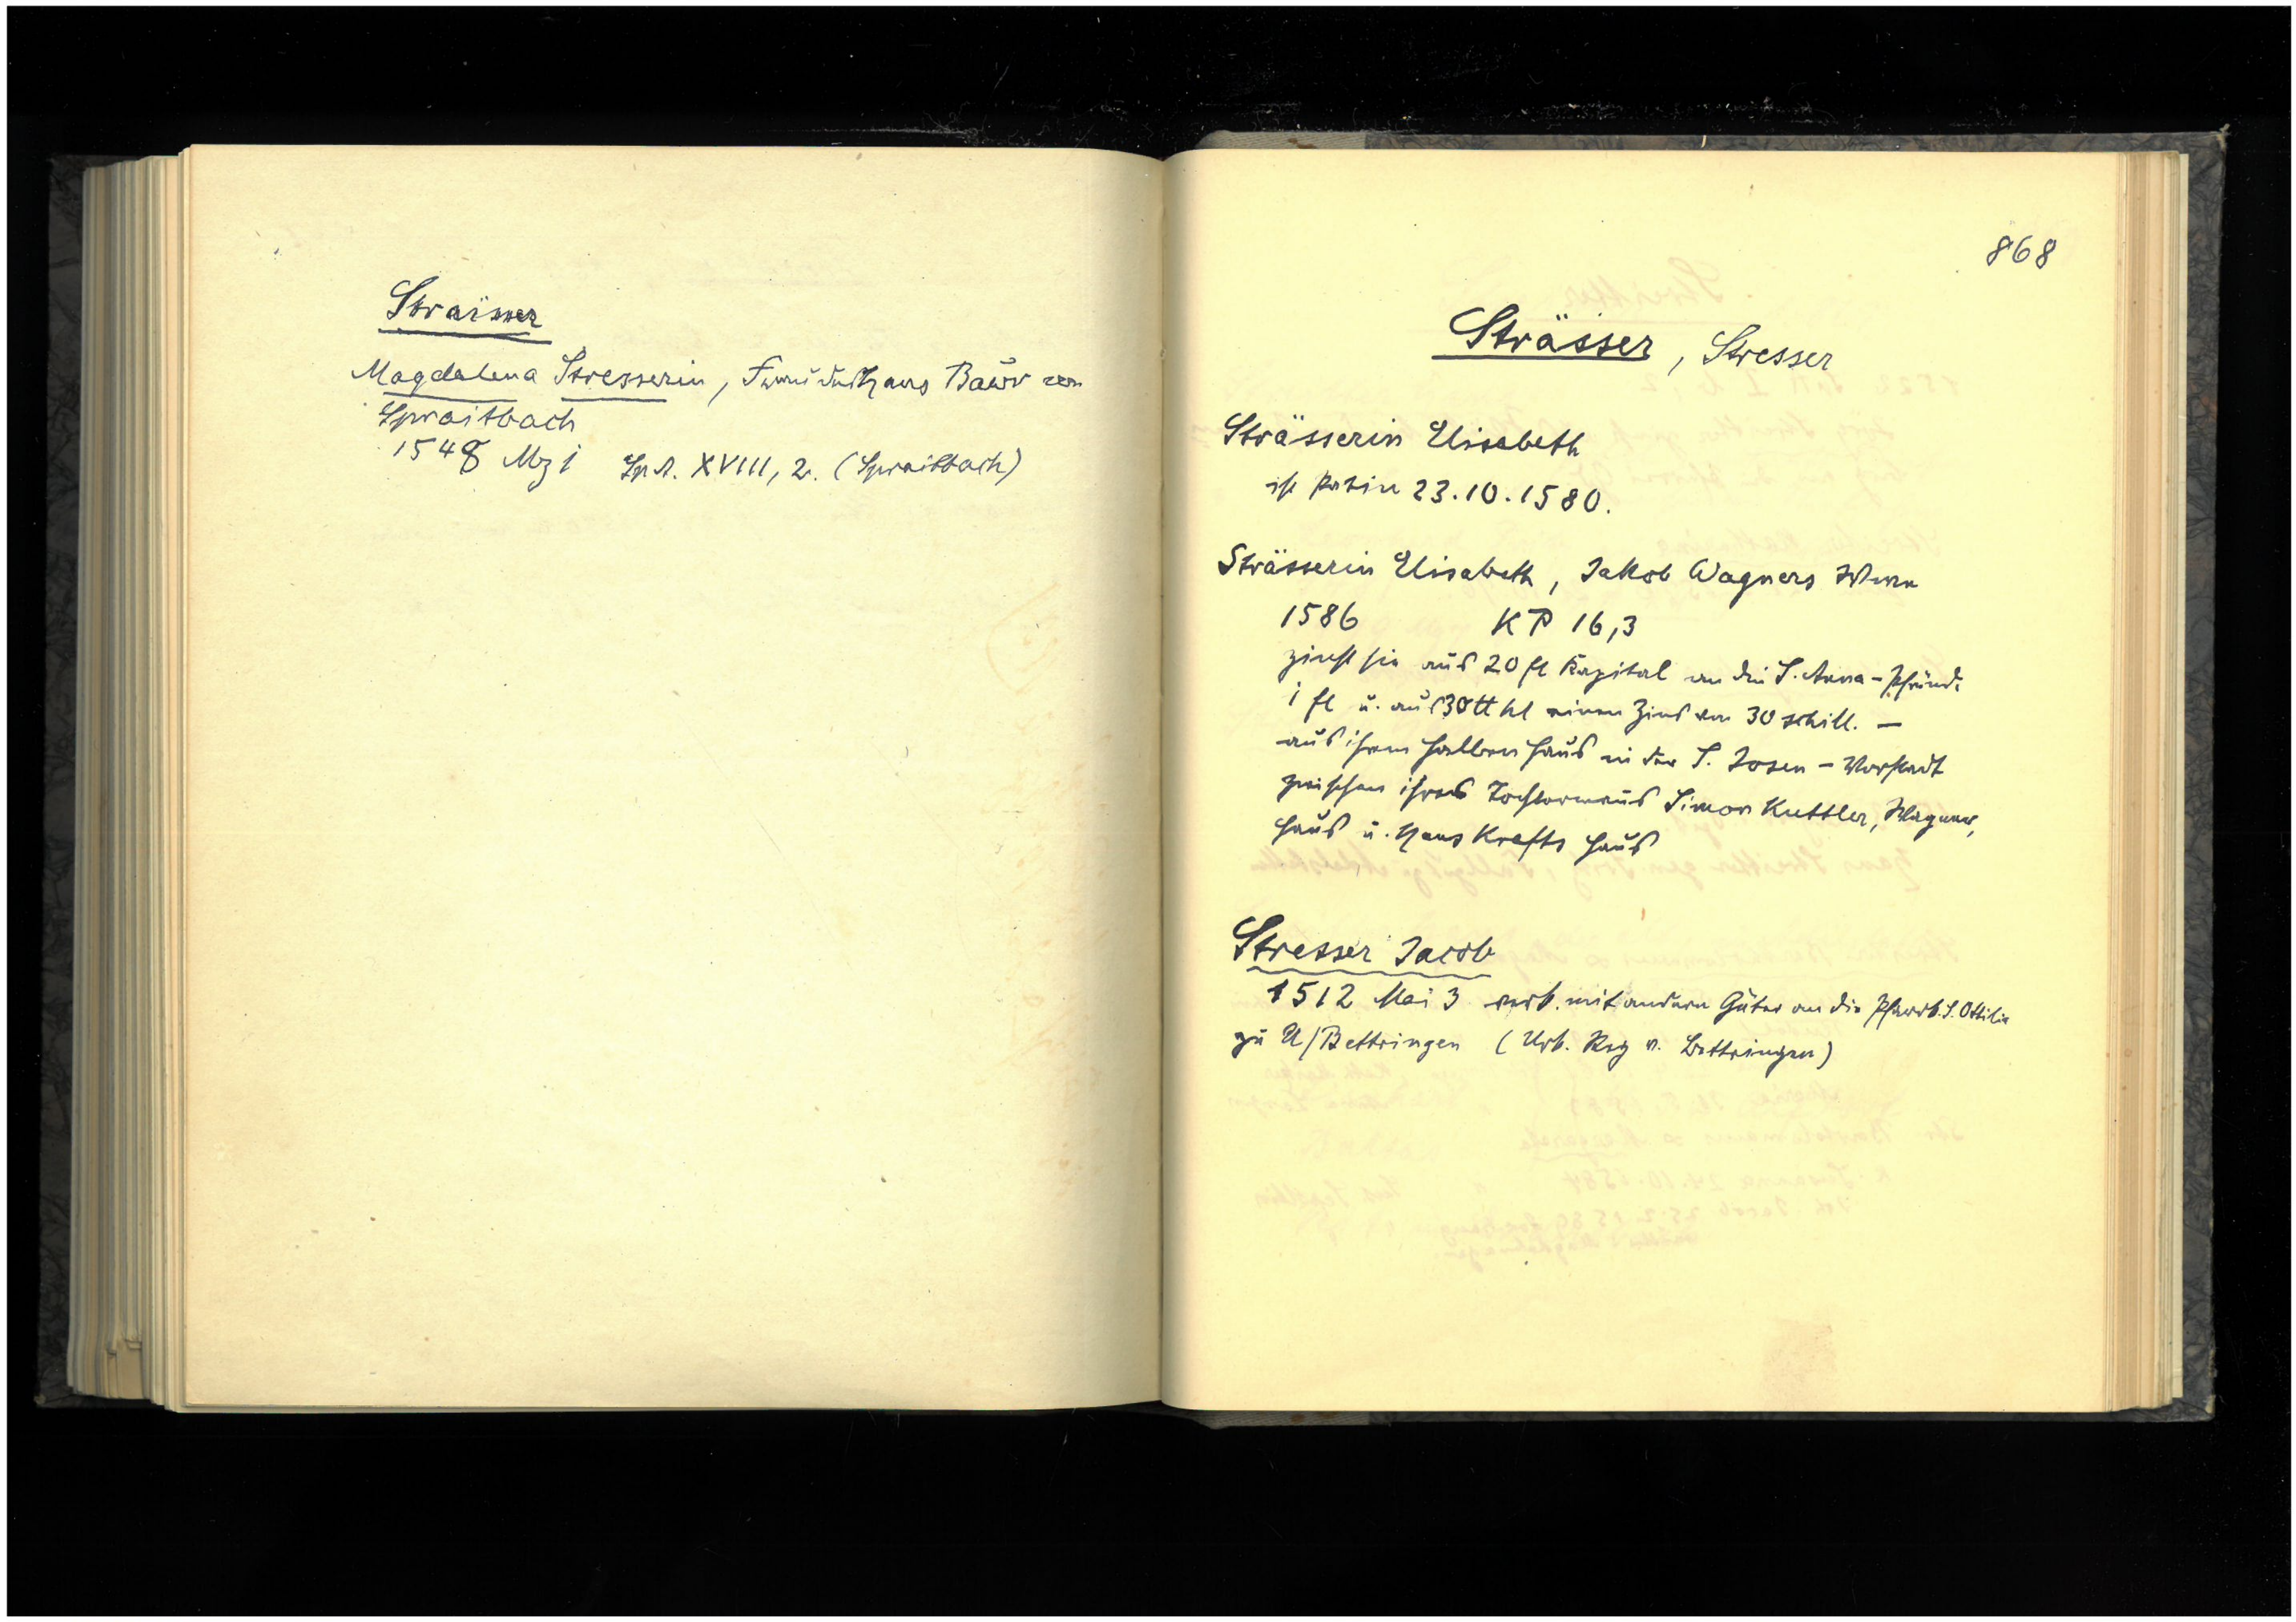 Strässer
Magdalena Stresserin, Frau des Hans Baur von
Spraitbach
1548 Mz 1 Sp A. XVIII, 2. (Spraitbach)
868
Strässer, Stresser
Strässerin Elisabeth
ist Patin 23.10.1580.
Strässerin Elisabeth, Jakob Wagners Witwe
1586 KP 16,3
zinst sie aus 20 fl Kapital an die S. Anna-Pfründe
1 fl u. aus 30 ℔ hl einen Zins von 30 schill. —
aus ihrem halben Haus in der S. Josen-Vorstadt
zwischen ihres Tochtermanns Simon Kuttler, Wagner,
Haus u. Hans Krefts Haus
Stresser Jacob
1512 Mai 3 verk. mit andern Güter an die Pfarrk. S. Ottilie
zu U/Bettringen (Urk. Reg v. Bettringen)